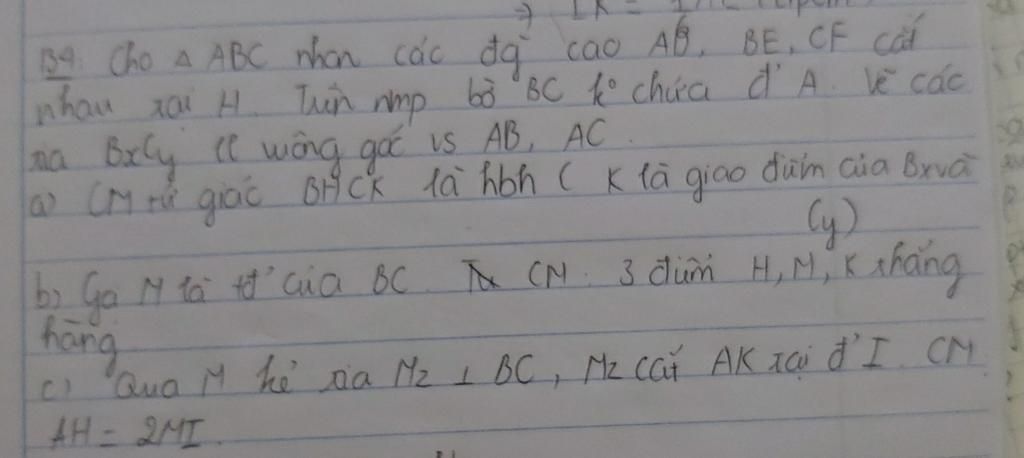 B4. Cho △ ABC nhọn các đg cao AD, BE, CF cắt
nhau tại H. Trên nmp bờ BC k° chứa đ' A. Vẽ các
tia Bx Cy ll vuông góc vs AB, AC.
a) CM tứ giác BHCK là hbh ( K là giao điểm của Bx và
Cy)
b) Gọi M là tđ' của BC. CM: 3 điểm H, M, K thẳng
hàng
c) Qua M kẻ tia Mz ⊥ BC, Mz cắt AK tại đ' I. CM
AH = 2MI.